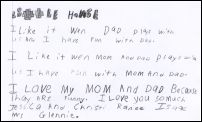 HOUSE
I Like it Wen Dad Plays with
us I have fun with Dad.
I Like it wen Mom And Dad Plays with
us I have fun with Mom And Dad.
I LOVE My MOM AND DAD Because
they are funny. I LOVE you somach
Jessica And Christ Isaac
Mrs Glennie.